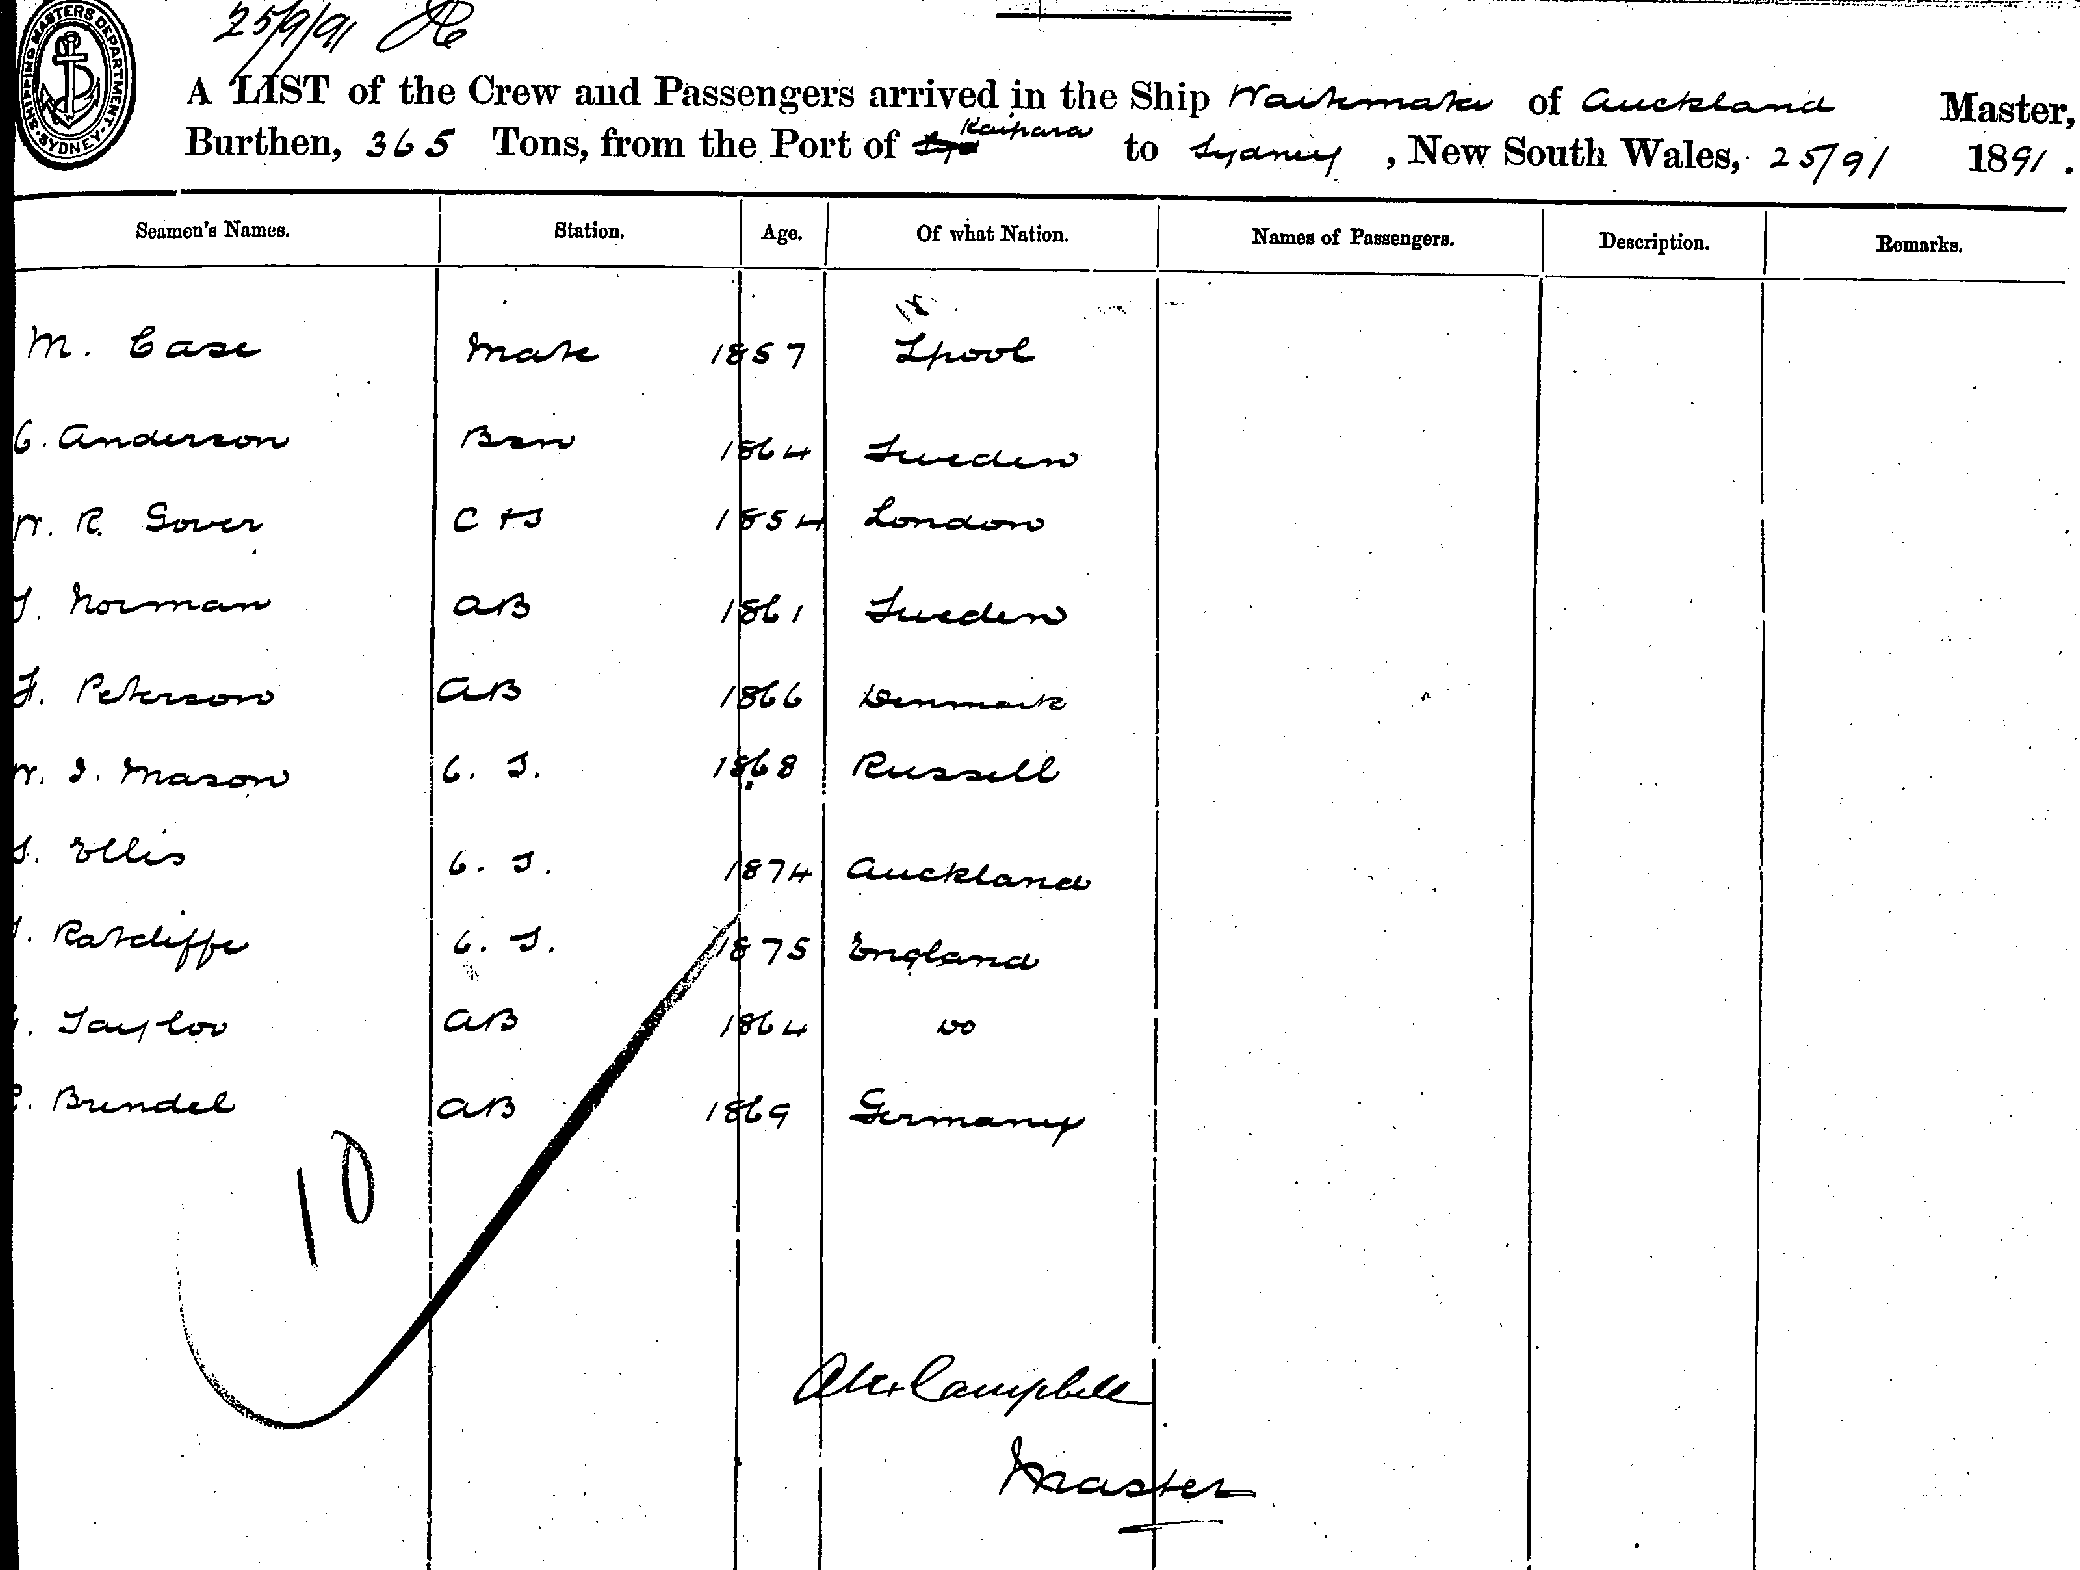 25/9/91
SHIPPING MASTERS DEPARTMENT SYDNEY
A LIST of the Crew and Passengers arrived in the Ship Waitemata of Auckland Master,
Burthen, 365 Tons, from the Port of Kaipara to Sydney, New South Wales, 25/9/ 1891.
Seamen's Names. Station. Age. Of what Nation. Names of Passengers. Description. Remarks.
M. Case Mate 1857 Lpool
C. Anderson Bsn 1864 Sweden
W. R. Gover C & S 1854 London
Norman AB 1861 Sweden
F. Peterson AB 1866 Denmark
W. J. Mason O. S. 1868 Russell
Ellis O. S. 1874 Auckland
Ratcliffe O. S. 1875 England
Taylor AB 1864 do
Brundel AB 1869 Germany
10
Alex Campbell
Master